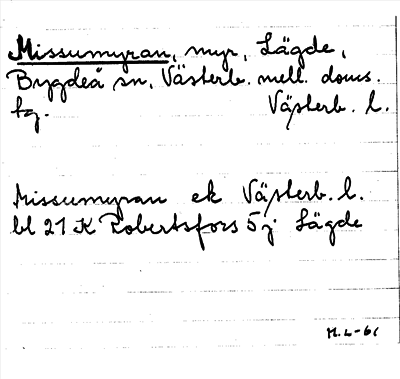 Missumyran, myr, Lägde,
Bygdeå sn, Västerb. mell. doms.
tg. Västerb. l.
Missumyran ek Västerb. l.
bl 21 K Robertsfors 5 j Lägde
M.L-61